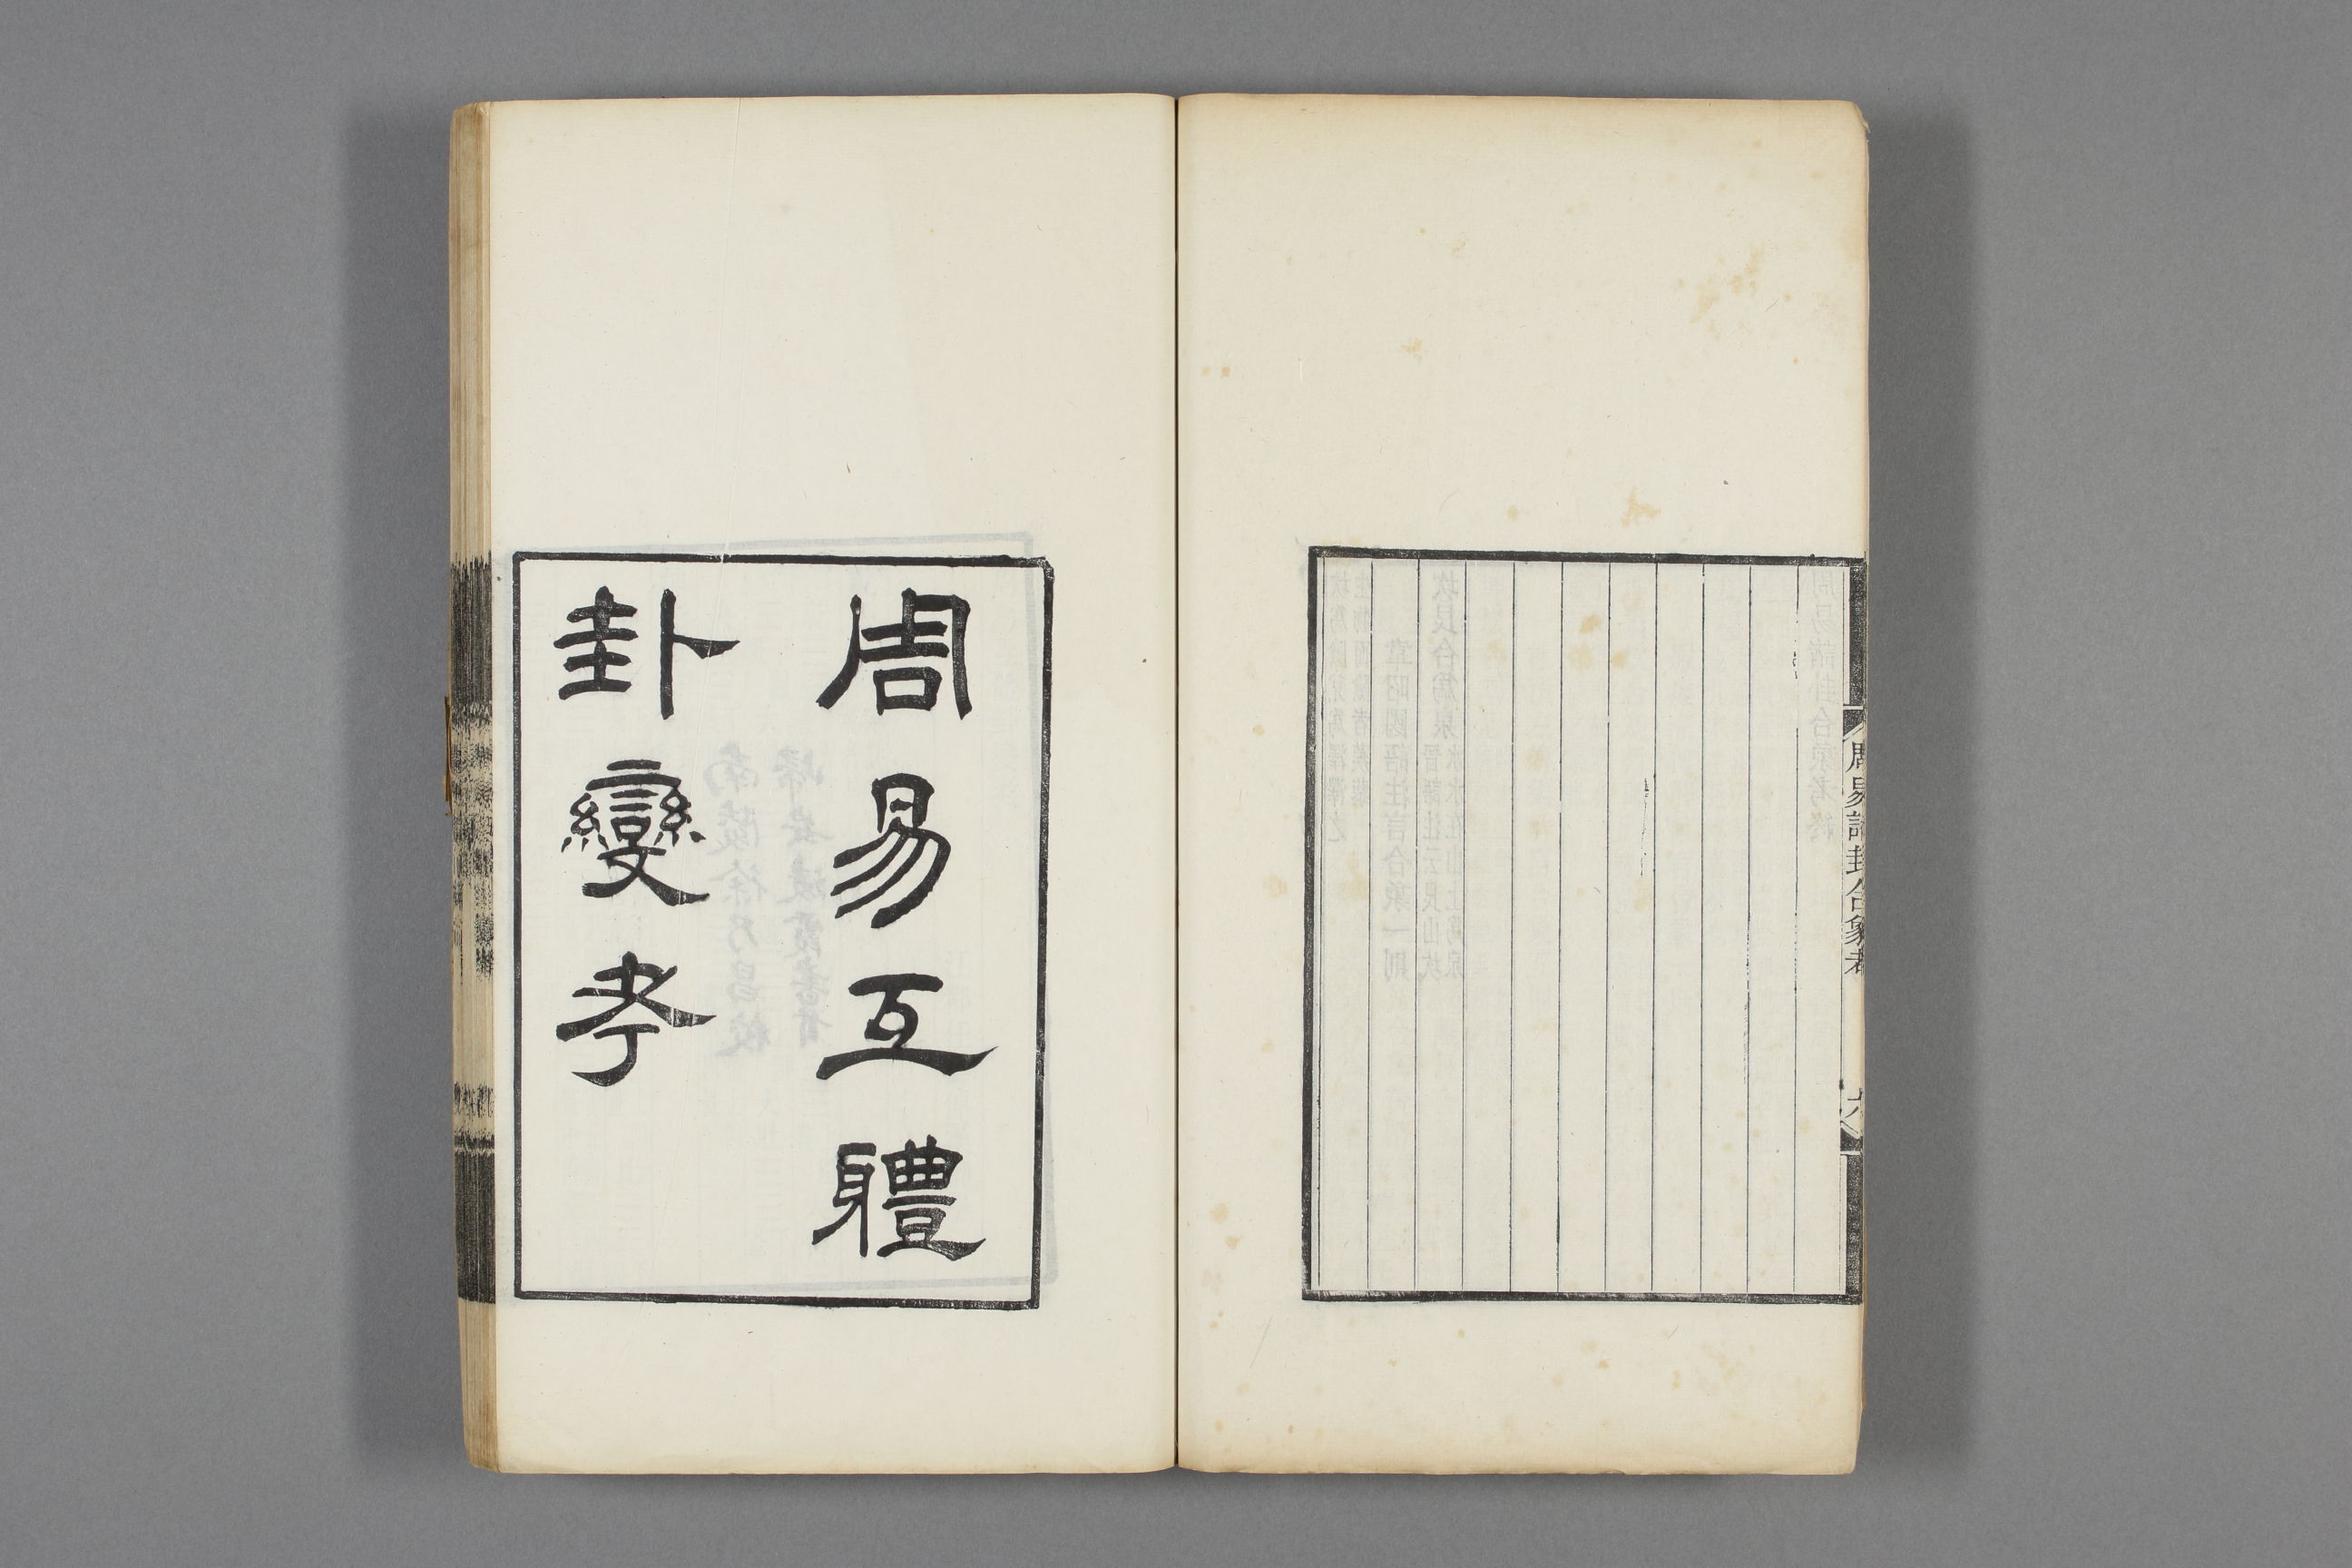 周易諸卦合象考
六
周易互體
卦變考